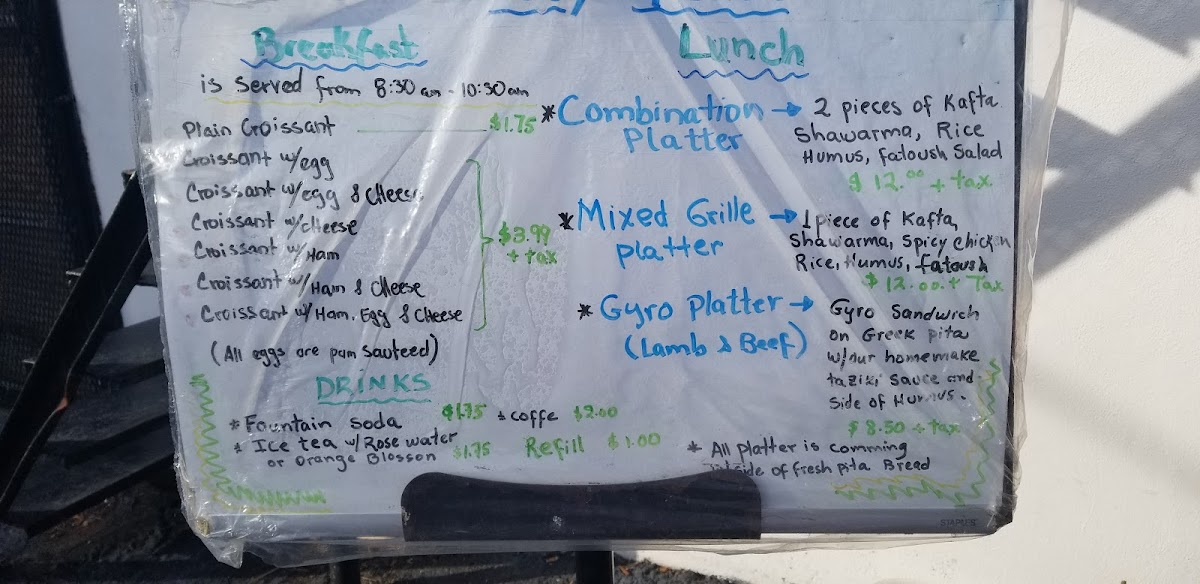 Breakfast
is served from 8:30 am - 10:30am
Plain Croissant $1.75
Croissant w/egg
Croissant w/egg & Cheese
Croissant w/cheese
Croissant w/Ham
Croissant w/Ham & Cheese
Croissant w/Ham, Egg & Cheese
$3.99
+ tax
(All eggs are pam Sauteed)
DRINKS
* Fountain soda $1.75 * coffe $2.00
* Ice tea w/Rose water
or Orange Blosson $1.75 Refill $1.00
Lunch
* Combination → 2 pieces of Kafta
Platter Shawarma, Rice
Humus, fatoush Salad
$ 12.00 + tax
* Mixed Grille → 1 piece of Kafta,
platter Shawarma, Spicy chicken
Rice, Humus, fatoush
$ 12.00 + Tax
* Gyro platter → Gyro Sandwich
(Lamb & Beef) on Greek pita
w/our homemake
taziki sauce and
Side of Humus.
$ 8.50 + tax
* All platter is comming
side of fresh pita Bread
STAPLES